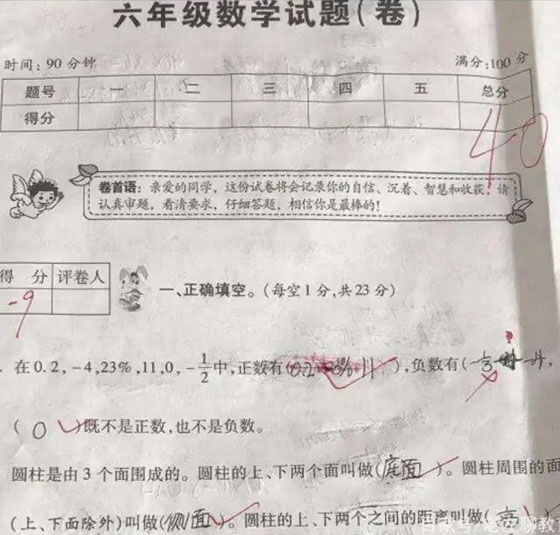 六年级数学试题(卷)
时间:90分钟 满分:100分
题号 一 二 三 四 五 总分
得分 40
卷首语:亲爱的同学,这份试卷将会记录你的自信、沉着、智慧和收获!请
认真审题,看清要求,仔细答题,相信你是最棒的!
得 分 评卷人
-9
一、正确填空。(每空1分,共23分)
在0.2,-4,23%,11,0,-1/2中,正数有( ),负数有(
( 0 )既不是正数,也不是负数。
圆柱是由3个面围成的。圆柱的上、下两个面叫做(底面)。圆柱周围的面
(上、下面除外)叫做(侧面)。圆柱的上、下两个之间的距离叫做(高)